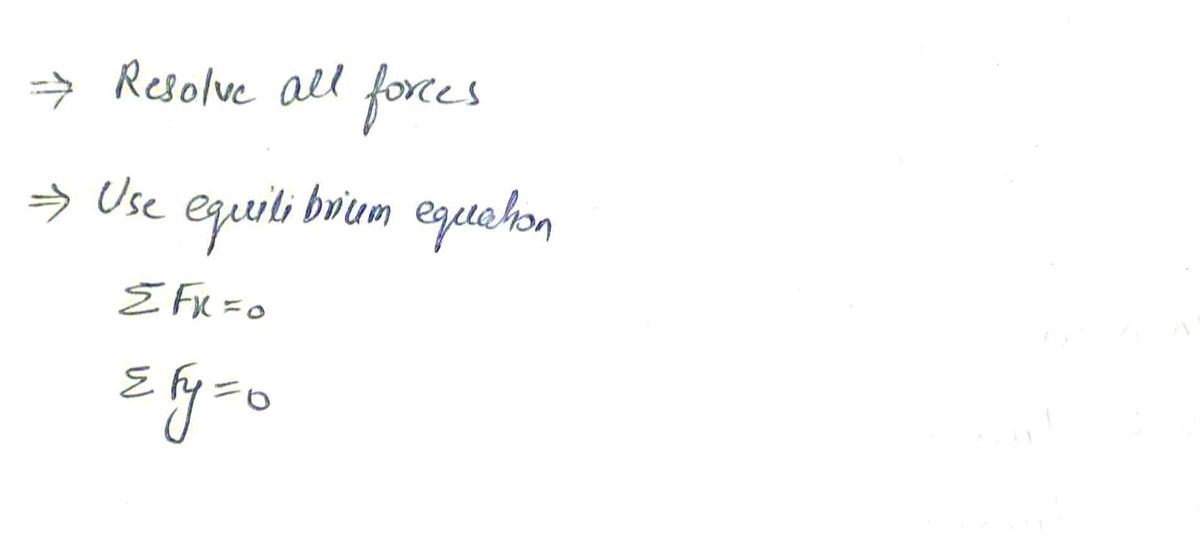 ⇒ Resolve all forces
⇒ Use equilibrium equation
Σ Fx = 0
Σ Fy = 0